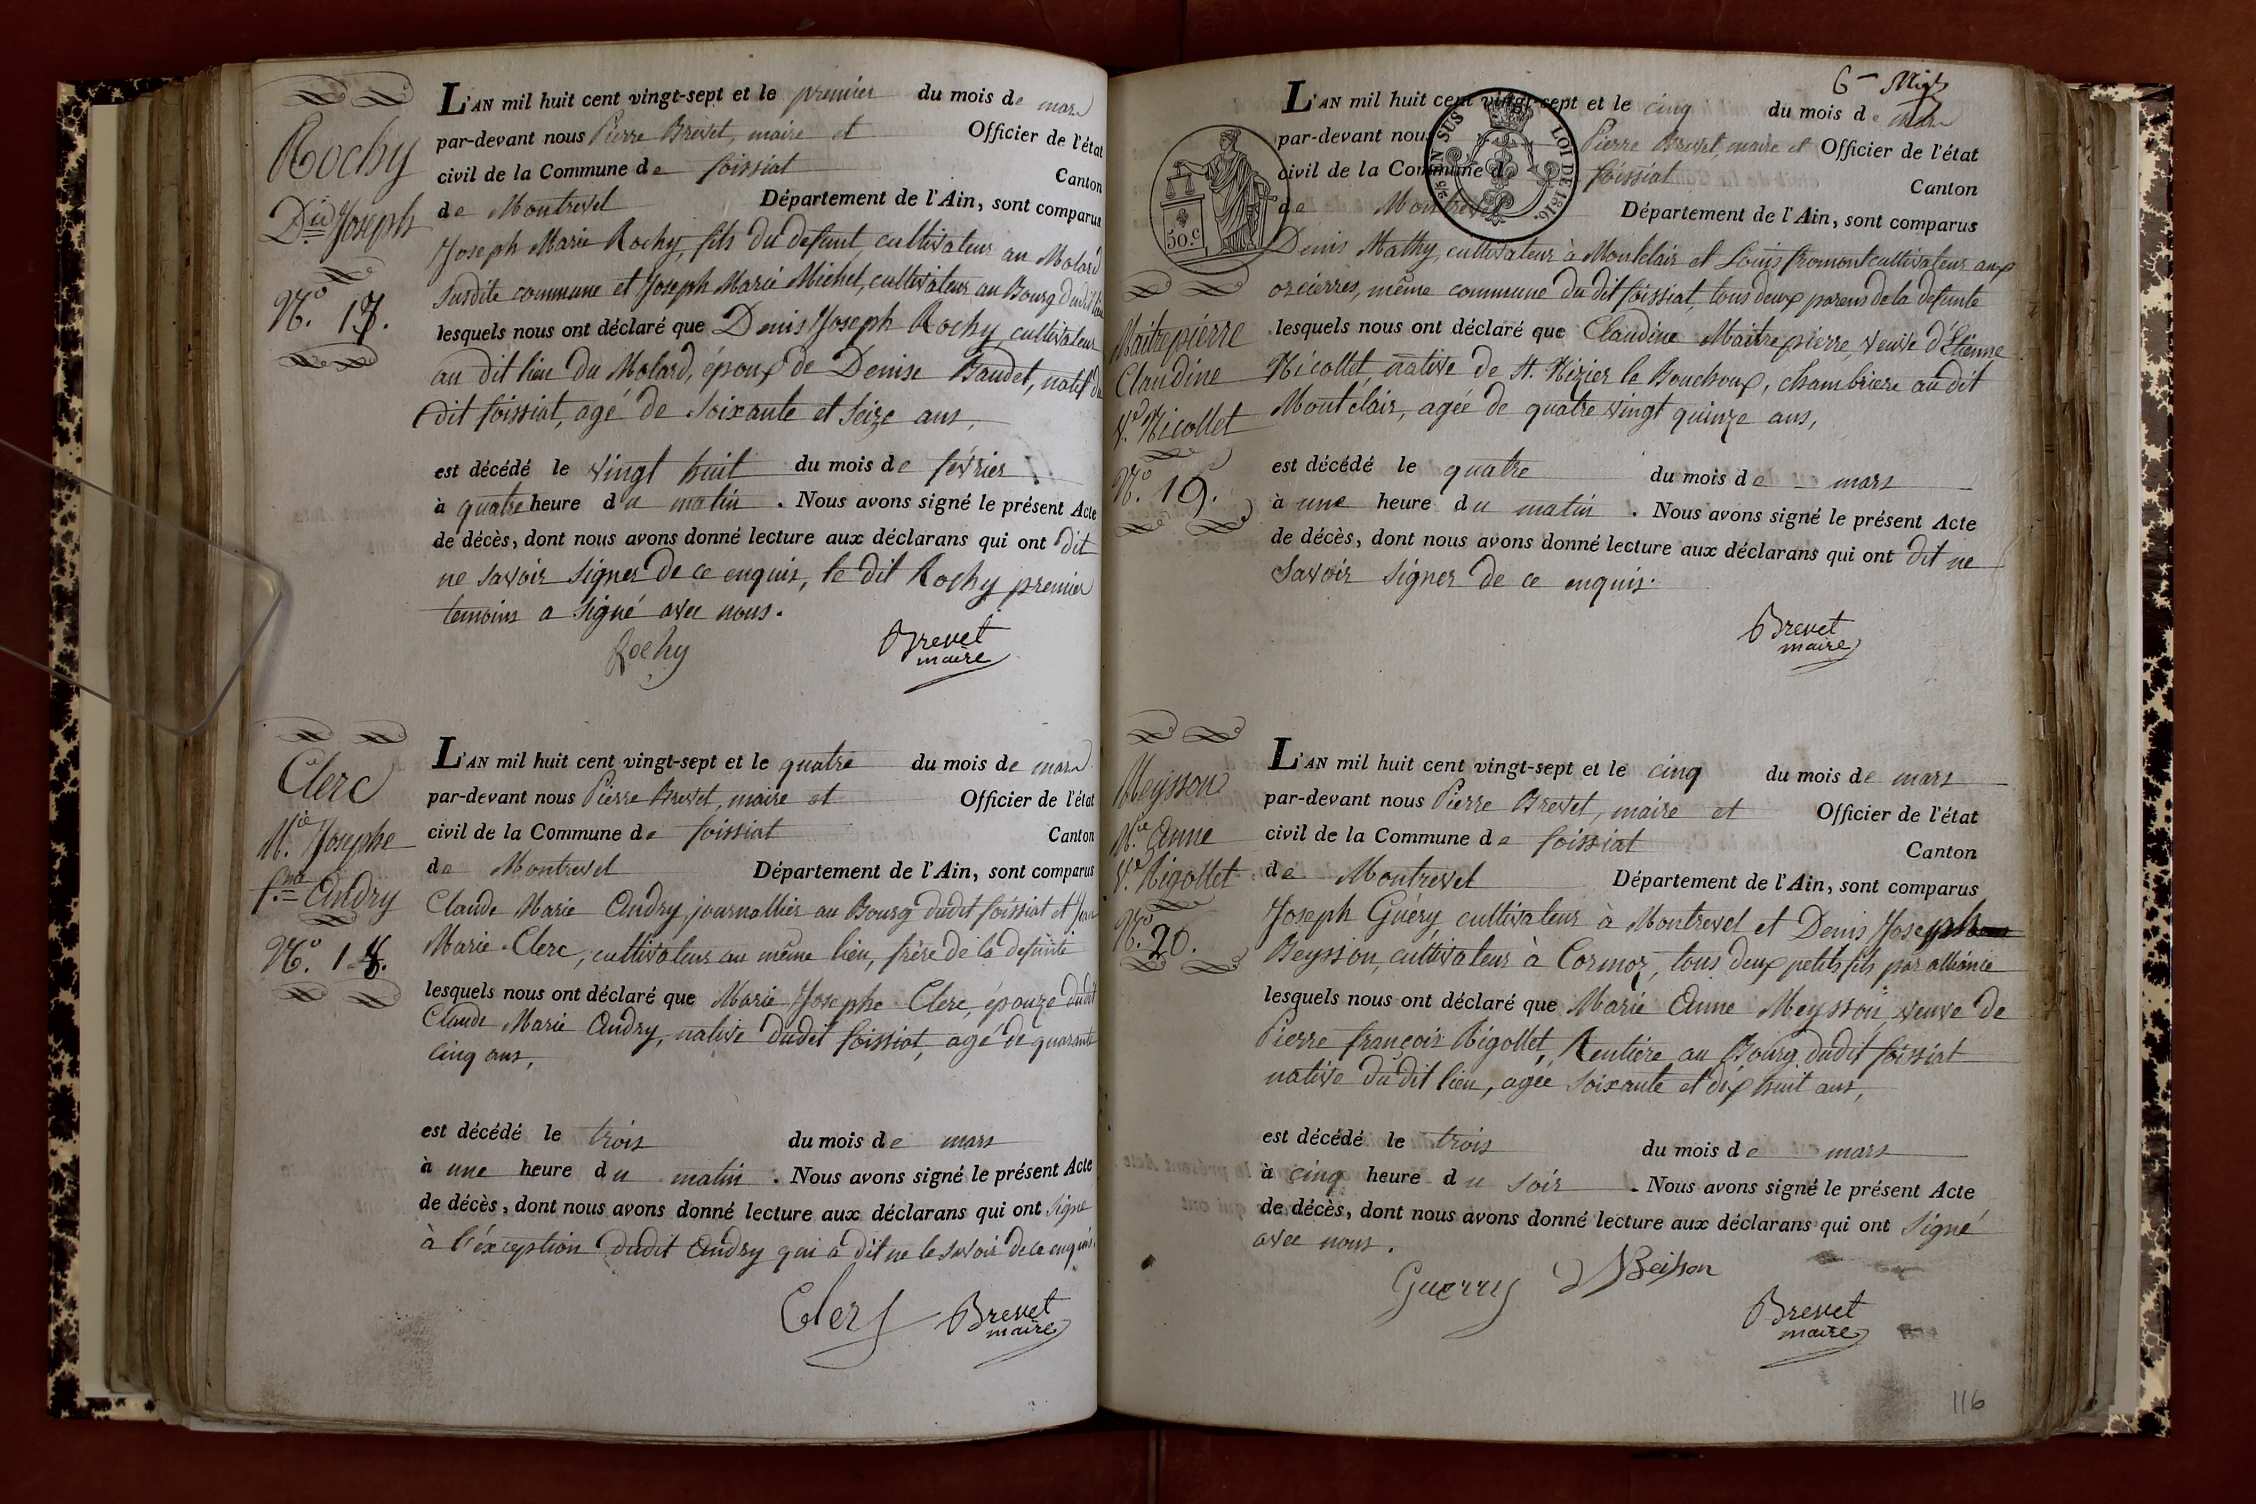 Rochy
D.is Joseph
N.o 17.
L'AN mil huit cent vingt-sept et le premier du mois de mars
par-devant nous Pierre Brevet, maire et Officier de l'état
civil de la Commune de foissiat Canton
de Montrevel Département de l'Ain, sont comparus
Joseph Marie Rochy, fils du defunt, cultivateur au Molard
susdite commune et Joseph Marie Michel, cultivateur au Bourg dudit lieu
lesquels nous ont déclaré que Denis Joseph Rochy, cultivateur
au dit lieu du Molard, époux de Denise Baudet, natif du
dit foissiat, agé de soixante et seize ans,
est décédé le vingt huit du mois de février
à quatre heure du matin . Nous avons signé le présent Acte
de décès, dont nous avons donné lecture aux déclarans qui ont dit
ne savoir signer de ce enquis, le dit Rochy premier
temoins a signé avec nous.
Rochy Brevet
maire
Clerc
M.ie Josephe
f.me Andry
N.o 18.
L'AN mil huit cent vingt-sept et le quatre du mois de mars
par-devant nous Pierre Brevet, maire et Officier de l'état
civil de la Commune de foissiat Canton
de Montrevel Département de l'Ain, sont comparus
Claude Marie Andry, journallier au Bourg dudit foissiat et Jean
Marie Clerc, cultivateur au même lieu, frère de la defunte
lesquels nous ont déclaré que Marie Josephe Clerc, épouze dudit
Claude Marie Andry, native dudit foissiat, agé de quarante
cinq ans,
est décédé le trois du mois de mars
à une heure du matin . Nous avons signé le présent Acte
de décès, dont nous avons donné lecture aux déclarans qui ont signé
à l'éxception dudit Andry qui a dit ne le savoir de ce enquis.
Clerc Brevet
maire
6
EN SUS LOI DE 1816.
50.c
Maitrepierre
Claudine
V.e Nicollet
N.o 19.
L'AN mil huit cent vingt-sept et le cinq du mois de mars
par-devant nous Pierre Brevet, maire et Officier de l'état
civil de la Commune de foissiat Canton
de Montrevel Département de l'Ain, sont comparus
Denis Mathy, cultivateur à Montclair et Louis fromont cultivateur aux
oriérres, même commune du dit foissiat, tous deux parens de la defunte
lesquels nous ont déclaré que Claudine Maitrepierre, veuve d'Etienne
Nicollet, native de St. Nizier le Bouchoux, chambriere au dit
Montclair, agée de quatre vingt quinze ans,
est décédé le quatre du mois de mars
à une heure du matin . Nous avons signé le présent Acte
de décès, dont nous avons donné lecture aux déclarans qui ont dit ne
savoir signer de ce enquis.
Brevet
maire
Meysson
M.ie Anne
V.e Rigollet
N.o 20.
L'AN mil huit cent vingt-sept et le cinq du mois de mars
par-devant nous Pierre Brevet, maire et Officier de l'état
civil de la Commune de foissiat Canton
de Montrevel Département de l'Ain, sont comparus
Joseph Guéry, cultivateur à Montrevel et Denis Joseph
Beysson, cultivateur à Cormoz, tous deux petits fils par alliance
lesquels nous ont déclaré que Marie Anne Meysson, veuve de
Pierre françois Rigollet, Rentière au Bourg dudit foissiat
native du dit lieu, agée soixante et dix huit ans,
est décédé le trois du mois de mars
à cinq heure du soir . Nous avons signé le présent Acte
de décès, dont nous avons donné lecture aux déclarans qui ont signé
avec nous.
Guerry D J Beisson
Brevet
maire
116